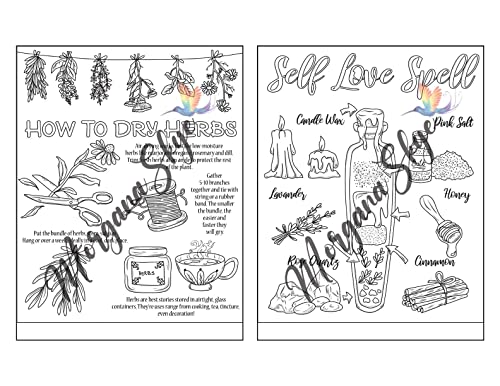 HOW TO DRY HERBS
low moisture
rosemary and dill.
to protect the rest
of the plant.
Gather
5-10 branches
together and tie with
string or a rubber
band. The smaller
the bundle, the
easier and
faster they
will dry.
Put the bundle of herbs
Hang or over a
HERBS
Herbs are best stories stored in airtight, glass
containers. They're uses range from cooking, tea, tincture,
even decoration!
Morgana Skye
Self Love Spell
Candle Wax
Pink Salt
Lavander
Honey
Rose Quartz
Cinnamon
Morgana Skye